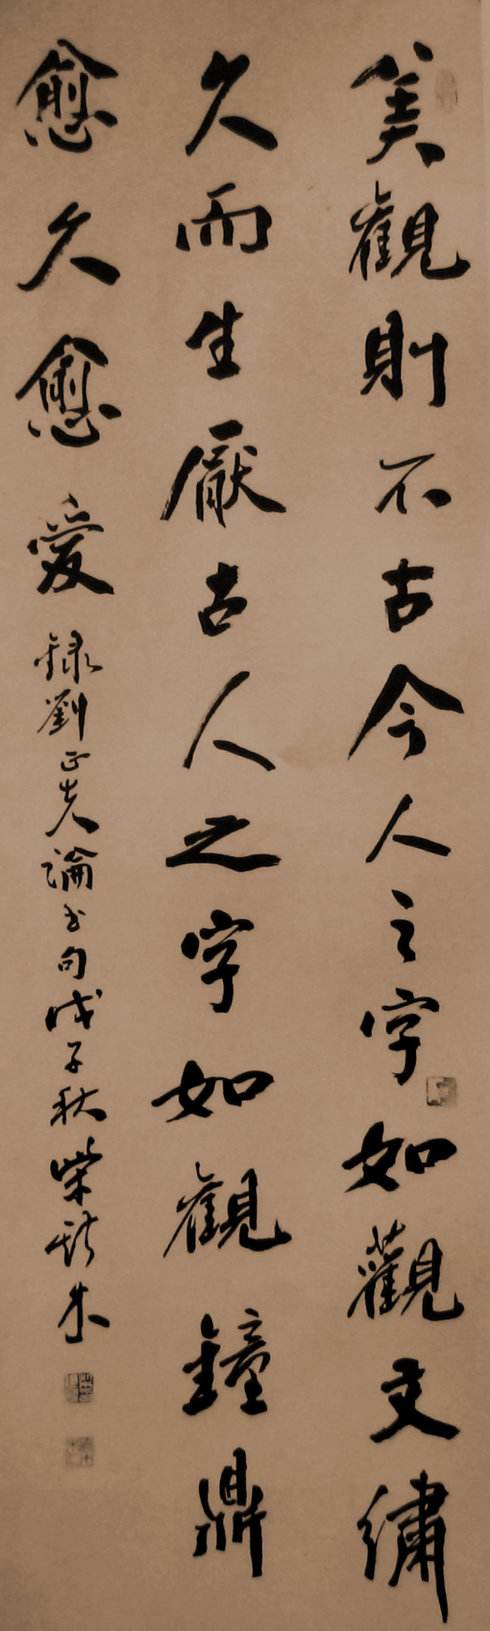 美觀則不古今人之字如觀文繡
久而生厭古人之字如觀鐘鼎
愈久愈愛
錄劉正夫論書句戊子秋柴